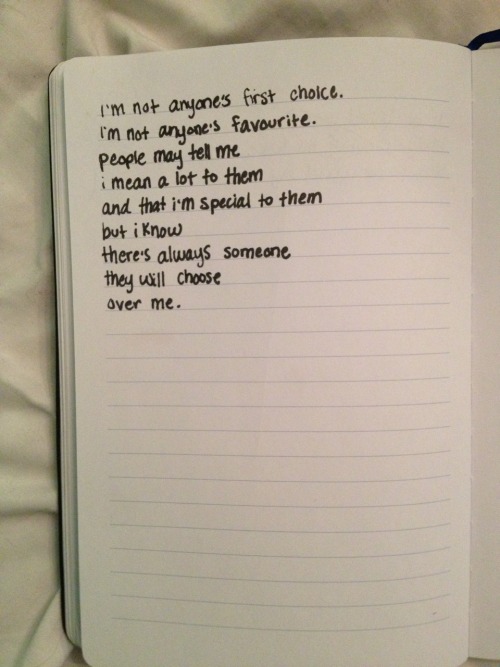 I'm not anyone's first choice.
I'm not anyone's favourite.
people may tell me
i mean a lot to them
and that i'm special to them
but i know
there's always someone
they will choose
over me.